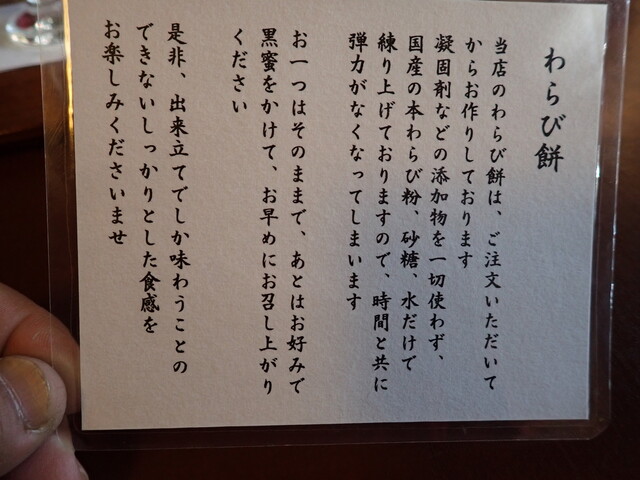 わらび餅
当店のわらび餅は、ご注文いただいて
からお作りしております
凝固剤などの添加物を一切使わず、
国産の本わらび粉、砂糖、水だけで
練り上げておりますので、時間と共に
弾力がなくなってしまいます
お一つはそのままで、あとはお好みで
黒蜜をかけて、お早めにお召し上がり
ください
是非、出来立てでしか味わうことの
できないしっかりとした食感を
お楽しみくださいませ